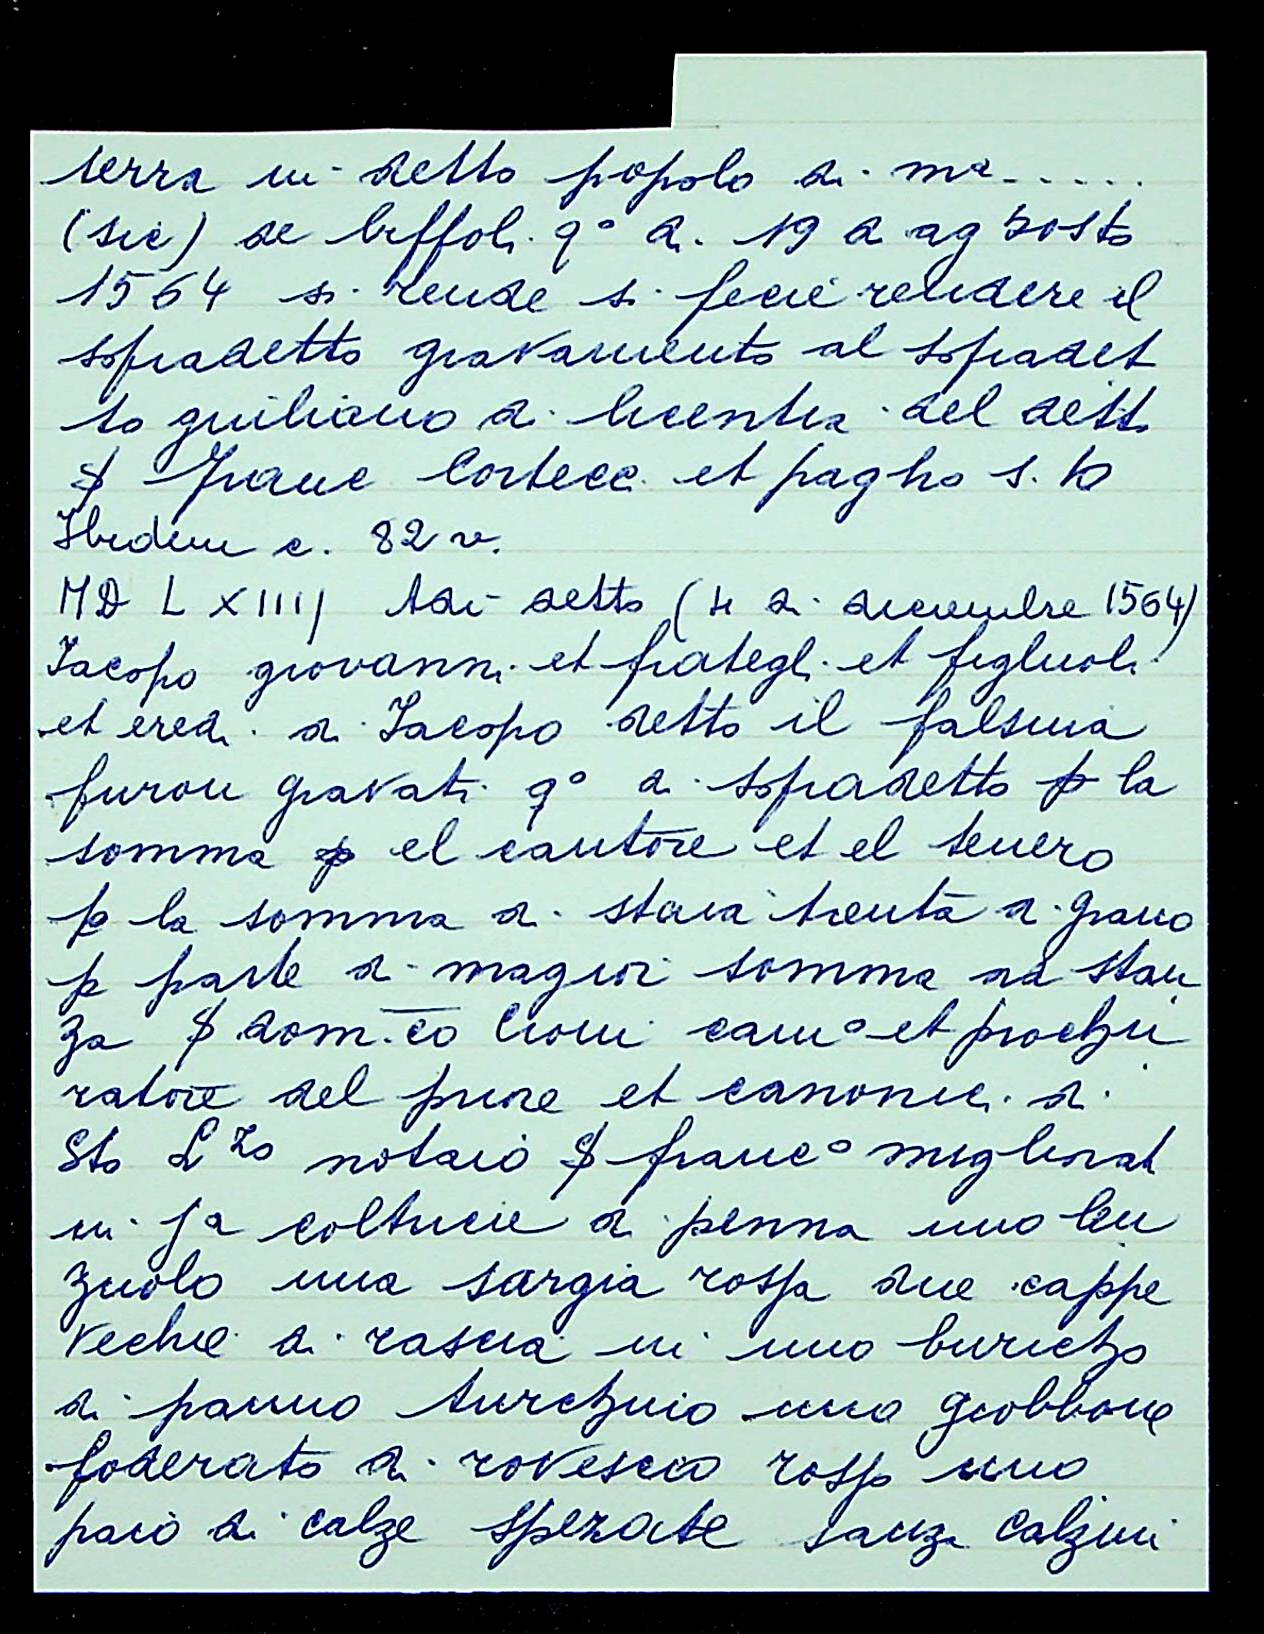 terra in detto popolo di ma.....
(sic) de biffoli. q° di. 19 d agosto
1564 si rende si fecie rendere il
sopradetto gravamento al sopradet
to guiliano di licentia del dett.
Franc Cortecc. et pagho s. 10
Ibidem c. 82 v.
MD L XIIII Adi detto (4 di dicembre 1564)
Iacopo giovanni et frategli et figliuoli
et eredi di Iacopo detto il falsina
furon gravati q° di sopradetto p la
somma p el cantore et el tenero
p la somma di staia trenta di grano
p parte di magior somma ad stan
za dom.co Cioni cam° et prochu
ratore del priore et canonici di
Sto Lzo notaio franc° migliorat
in ja coltricie di penna uno len
zuolo una sargia rossa due cappe
vechie di rascia in uno buricho
di panno turchino uno giobbone
foderato di rovescio rosso uno
paio di calze spezate sanza calzini